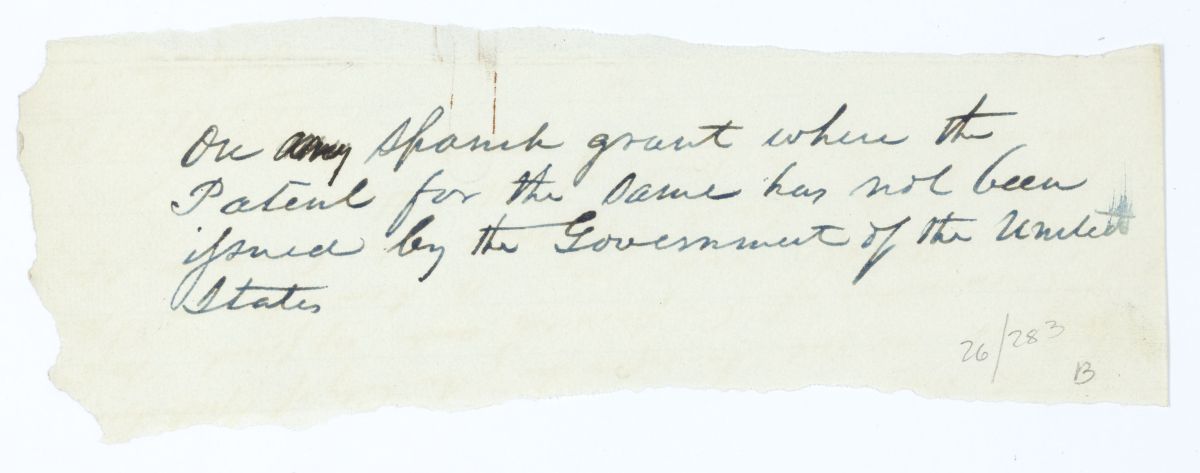 On any Spanish grant where the
Patent for the same has not been
issued by the Government of the United
States
26/283
B